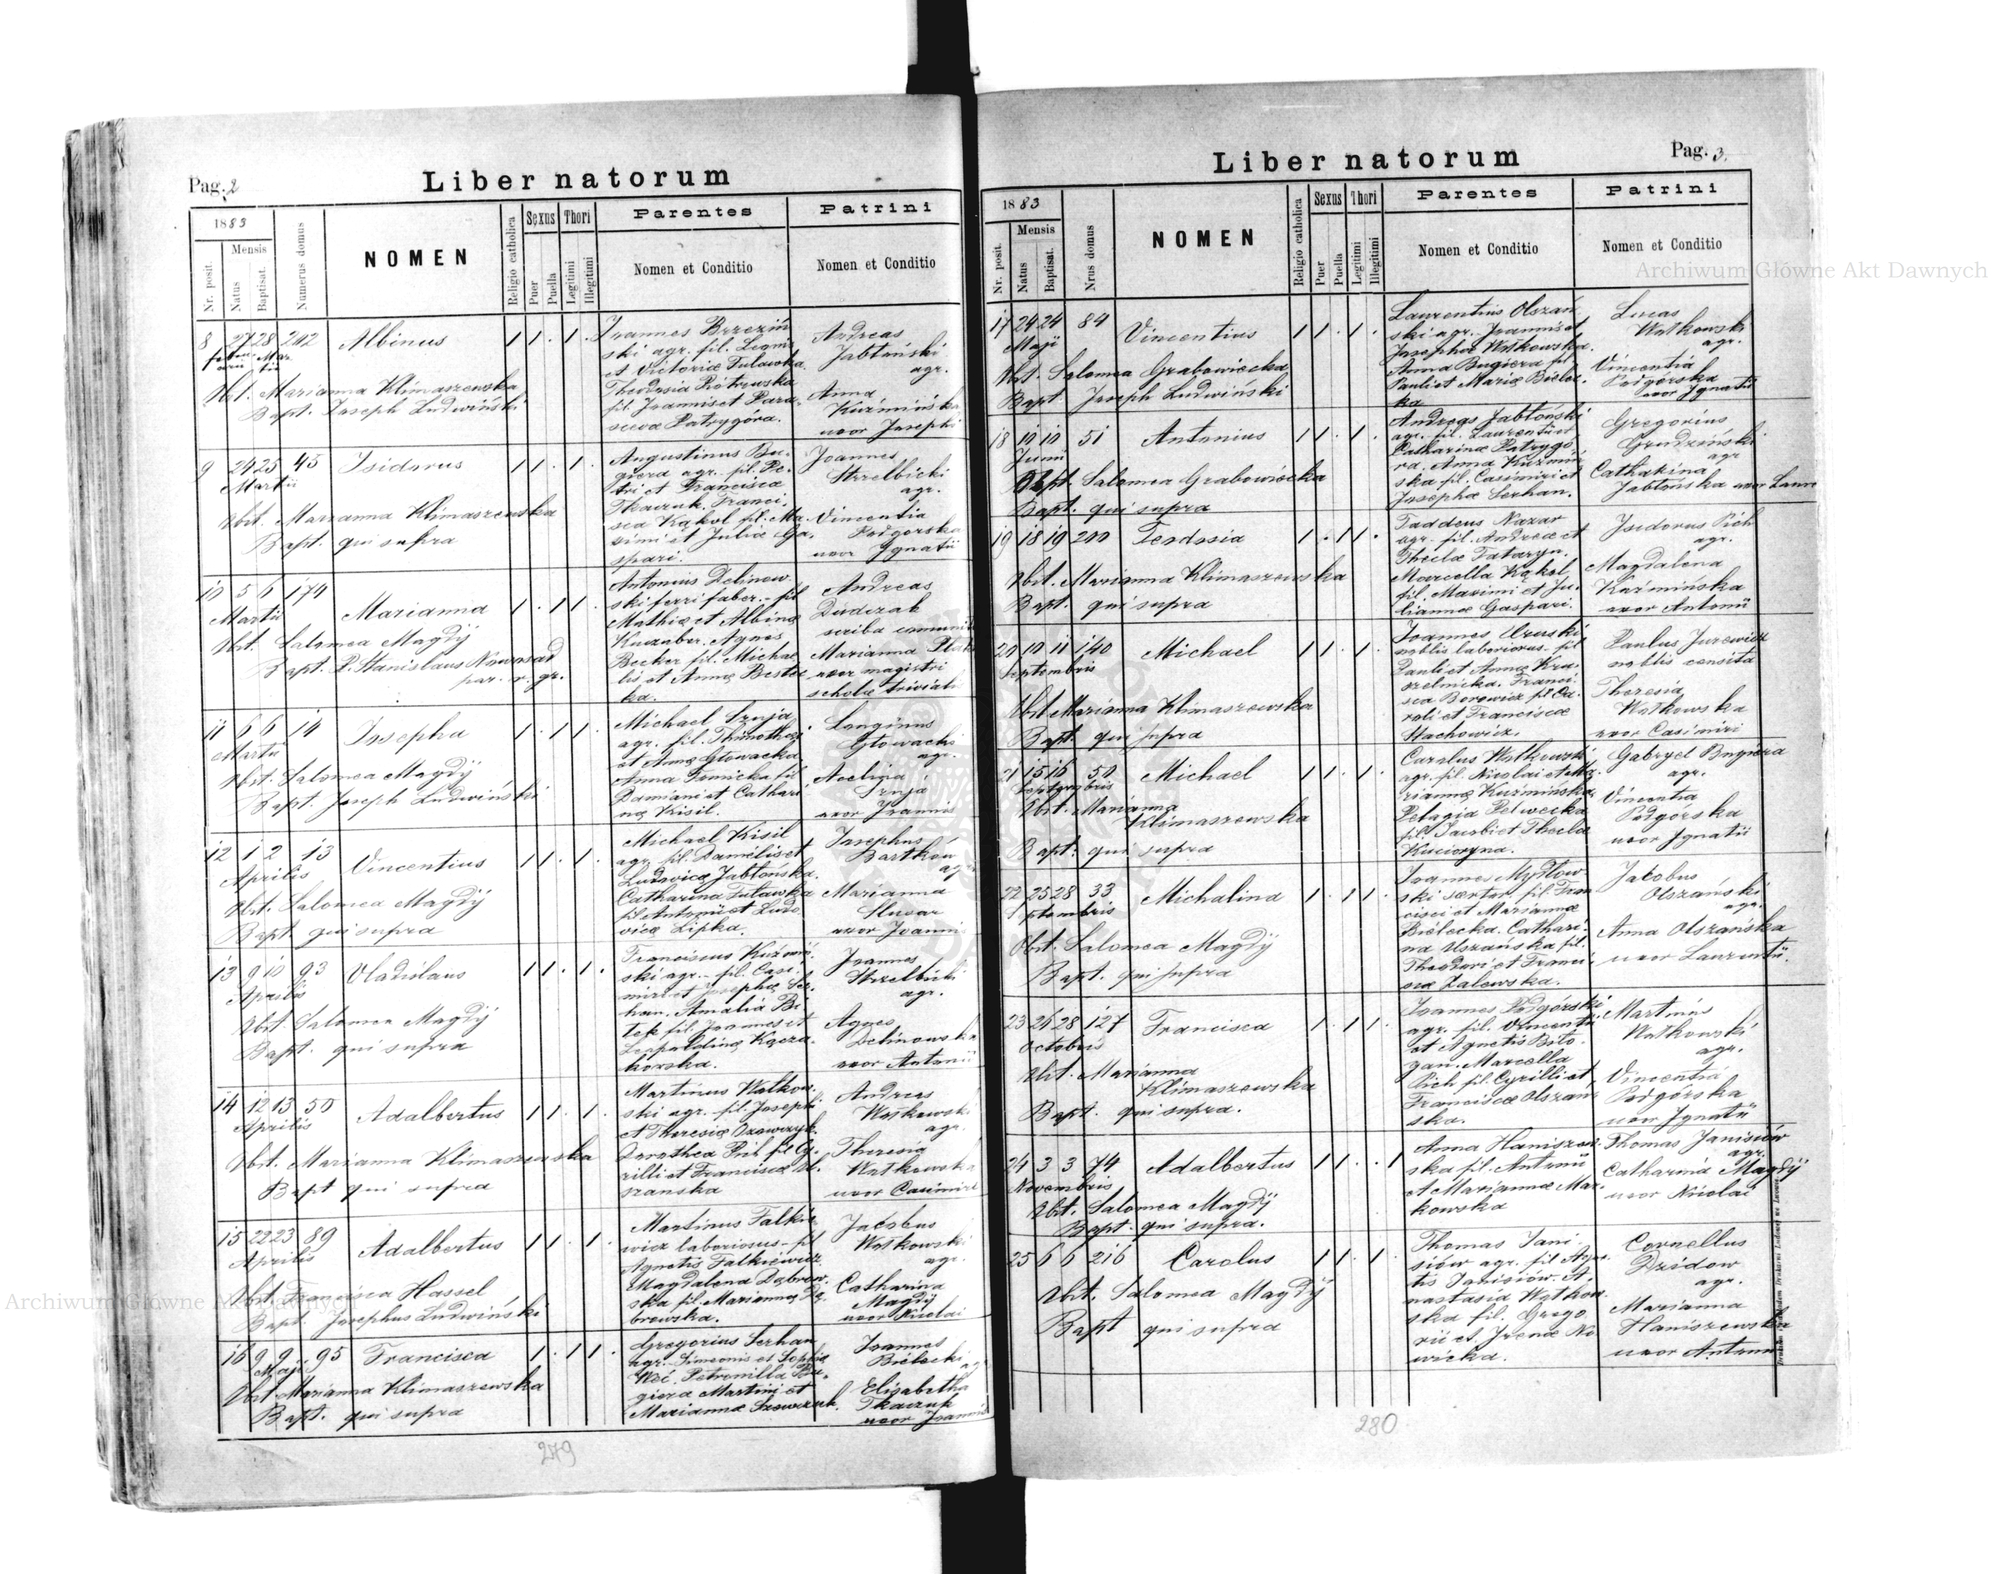 Pag. 2
Liber natorum
1883
Nr. posit.
Mensis
Natus
Baptisat.
Numerus domus
NOMEN
Religio catholica
Sexus
Puer
Puella
Thori
Legitimi
Illegitimi
Parentes
Nomen et Conditio
Patrini
Nomen et Conditio
8 27 28 202 Albinus
Obt. Marianna Klimaszewska
Bapt. Joseph Ludwiński
Joannes Brzeziń
ski agr. fil.
et Victoriæ
Theodosia Piotrowska
fil. Joannis et Para
Patrygóra.
Andreas
Jabłoński
agr.
Anna
Kuźmińska
uxor Josephi
9 24 25 45 Isidorus
Martii
Obt. Marianna Klimaszewska
Bapt. qui supra
Augustinus Bu-
giera agr. fil. Pe-
tri et Francisca
Tkaczuk. Franci-
sca Kąkol fil. Ma-
ximi et Julia Ga-
spari.
Joannes
Strzelbicki
agr.
Vincentia
Podgórska
uxor Ignatii
10 5 6 174 Marianna
Martii
Obt. Salomea Magdij
Bapt. P. Stanislaus Nowosad
par. r. gr.
Antonius Delinow-
ski ferri faber. - fil
Mathiæ et Albinæ
Agnes
Becker fil. Michae
lis et Annæ
ka.
Andreas
Dudczak
scriba
Marianna
uxor magistri
scholæ trivialis
11 6 6 14 Josepha
Martii
Obt. Salomea Magdij
Bapt. Joseph Ludwiński
Michael Sznja
agr. fil. Thimothei
et Annæ Głowacka
Anna Tomicka fil
Damiani et Cathari
næ Kisil.
Longinus
Głowacki
agr.
Acelina
Sznja
uxor Joannis
12 1 2 13 Vincentius
Aprilis
Obt. Salomea Magdij
Bapt. qui supra
Michael Kisil
agr. fil. Danielis et
Ludovicæ Jabłońska.
Catharina Tuławska
fil. Antonii et Ludo
vicæ Lipka.
Josephus
Bartków
agr
Marianna
Slusar
uxor Joannis
13 9 10 93 Vladislaus
Aprilis
Obt. Salomea Magdij
Bapt. qui supra
Franciscus Kuźmiń
ski agr. - fil. Casi
miri et Josephæ Ser
han. Amalia Bi
tek fil. Joannis et
Leopoldinæ Kącz
kowska.
Joannes
Strzelbicki
agr.
Agnes
Delinowska
uxor Antonii
14 12 13 50 Adalbertus
Aprilis
Obt. Marianna Klimaszewska
Bapt qui supra
Martinus Watkow-
ski agr. fil. Josephi
et Theresiæ Szewczyk.
Dorothea Pich fil Cy-
rilli et Francisca Ol-
szanska
Andreas
Watkowski
agr.
Theresia
Watkowska
uxor Casimiri
15 22 23 89 Adalbertus
Aprilis
Obt. Francisca Hassel
Bapt. Josephus Ludwiński
Martinus Falkie
wicz laboriosus - fil
Agnetis Falkiewicz
Magdalena Dąbrow-
ska fil. Mariannæ Dą
browska.
Jacobus
Watkowski
agr.
Catharina
Magdij
uxor Nicolai
16 9 9 95 Francisca
Maji
Obt. Marianna Klimaszewska
Bapt. qui supra
Gregorius Serhan
agr. Simeonis et Sophiæ
Petronilla Bu-
giera Martini et
Mariannæ Szewczuk.
Joannes
Bielecki
Elisabetha
Tkaczuk
uxor Joannis
279
Pag. 3.
Liber natorum
1883
Nr. posit.
Mensis
Natus
Baptisat.
Nrus domus
NOMEN
Religio catholica
Sexus
Puer
Puella
Thori
Legitimi
Illegitimi
Parentes
Nomen et Conditio
Patrini
Nomen et Conditio
17 24 24 84 Vincentius
Maji
Obt. Salomea Grabowiecka
Bapt Joseph Ludwiński
Laurentius Olszań
ski agr. Joannis et
Josephæ Watkowska.
Anna Bugiera fil.
Pauli et Mariæ Bielec
ka
Lucas
Watkowski
agr.
Vincentia
Podgórska
uxor Ignatii
18 10 10 51 Antonius
Junii
Obt. Salomea Grabowiecka
Bapt. qui supra
Andreas Jabłoński
agr. fil. Laurentii et
Catharinæ Patrygó
ra. Anna Kuźmiń
ska fil. Casimiri et
Josephæ Serhan.
Gregorius
Grudziński
agr
Catharina
Jabłońska uxor Laure
19 18 19 200 Teodosia
Obt. Marianna Klimaszewska
Bapt. qui supra
Taddeus Nazar
agr. fil. Andreæ et
Theclæ Tataryn.
Marcella Kąkol
fil. Maximi et Ju-
liannæ Gaspari.
Isidorus Pich
agr.
Magdalena
Kuźmińska
uxor Antonii
20 10 11 140 Michael
Septembris
Obt Marianna Klimaszewska
Bapt. qui supra
Joannes Uruski
nobilis laboriosus - fil
Pauli et Annæ Kra
szelnicka. Franci-
sca Borowicz fil. Ca-
roli et Franciscæ
Stachowicz.
Paulus Jurewicz
nobilis censita
Theresia
Watkowska
uxor Casimiri
21 15 16 50 Michael
Septembris
Obt. Marianna
Klimaszewska
Bapt. qui supra
Carolus Watkowski
agr. fil. Nicolai et Ma
riannæ Kuźmińska
Pelagia Pelwecka
fil. Jacobi et Theclæ
Kucioryna.
Gabryel Bugiera
agr.
Vincentia
Podgórska
uxor Ignatii
22 25 28 33 Michalina
Septembris
Obt. Salomea Magdij
Bapt. qui supra
Joannes Mydłow-
ski sartor fil. Fran
cisci et Mariannæ
Bielecka. Cathari-
na Olszańska fil.
Theodori et Franci-
scæ Zalewska.
Jacobus
Olszański
agr.
Anna Olszańska
uxor Laurentii.
23 26 28 127 Francisca
Octobris
Obt. Marianna
Klimaszewska
Bapt. qui supra.
Joannes Podgórski
agr. fil. Vincentii
et Agnetis Boto-
zan. Marcella
Pich fil. Cyrilli et
Franciscæ Olszań
ska.
Martinus
Watkowski
agr.
Vincentia
Podgórska
uxor Ignatii
24 3 3 74 Adalbertus
Novembris
Obt. Salomea Magdij
Bapt. qui supra.
Anna Haniszew-
ska fil. Antonii
et Mariannæ Mar-
kowska
Thomas Janisiów
agr.
Catharina Magdij
uxor Nicolai
25 6 6 216 Carolus
Obt. Salomea Magdij
Bapt qui supra
Thomas Jani-
siów agr. fil Agne-
tis Janisiów. A-
nastasia Watkow-
ska fil. Grego
rii et Irenæ No
wicka.
Cornellus
Dzidow
agr.
Marianna
Haniszewska
uxor Antonii
280
Archiwum Główne Akt Dawnych
Archiwum Główne Akt Dawnych